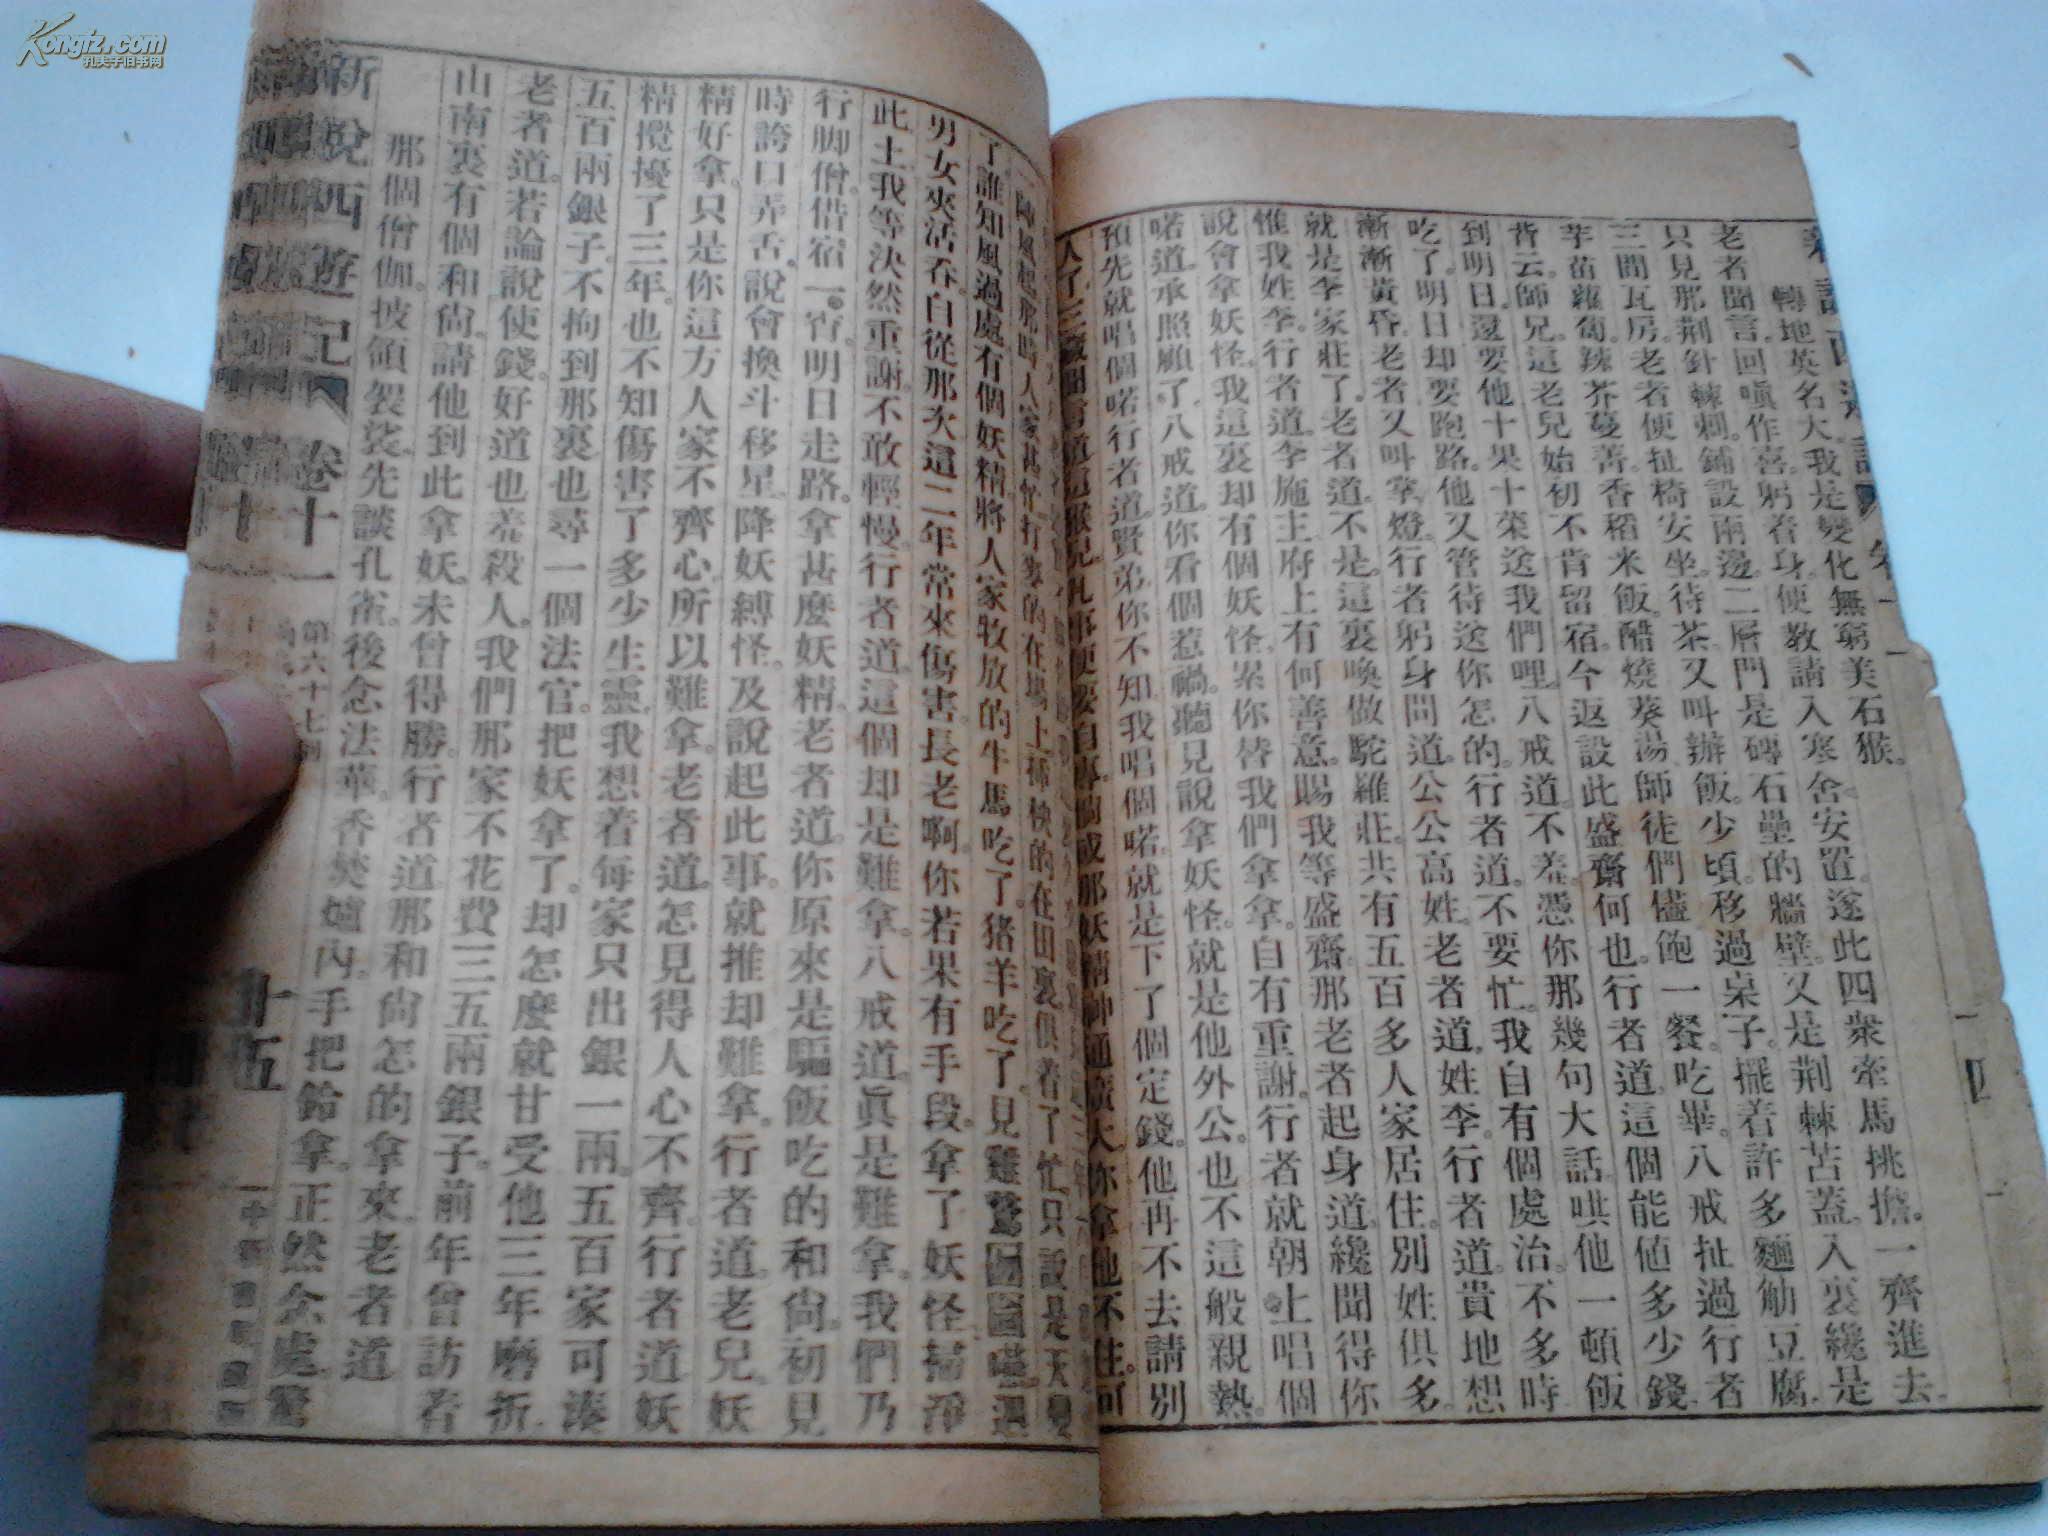 轉地英名大。我是變化無窮美石猴。
老者聞言。回嗔作喜。躬着身。便教請入寒舍安置。遂此四衆牽馬挑擔。一齊進去。
只見那荆針棘刺。鋪設兩邊。二層門是磚石壘的牆壁。又是荆棘苦蓋。入裏纔是
三間瓦房。老者便扯椅安坐。待茶。又叫辦飯。少頃。移過桌子。擺着許多麵觔豆腐。
芋苗蘿蔔。辣芥蔓菁。香稻米飯。醋燒葵湯。師徒們儘飽一餐。吃畢。八戒扯過行者
背云。師兄。這老兒始初不肯留宿。今返設此盛齋。何也。行者道。這個能値多少錢。
到明日。還要他十果十菜送我們哩。八戒道。不羞。憑你那幾句大話。哄他一頓飯
吃了。明日却要跑路。他又管待送你怎的。行者道。不要忙。我自有個處治。不多時
漸漸黃昏。老者又叫掌燈。行者躬身問道。公公高姓。老者道。姓李。行者道。貴地想
就是李家莊了。老者道。不是。這裏喚做駝羅莊。共有五百多人家居住。別姓俱多。
惟我姓李。行者道。李施主。府上有何善意。賜我等盛齋。那老者起身道。纔聞得你
說會拿妖怪。我這裏却有個妖怪。累你替我們拿拿。自有重謝。行者就朝上唱個
喏道。承照顧了。八戒道。你看個惹禍。聽見說拿妖怪。就是他外公。也不這般親熱。
預先就唱個喏。行者道。賢弟。你不知。我唱個喏。就是下了個定錢。他再不去請別
人了。三藏聞言道。這猴兒凡事便要自專。倘或那妖精神通廣大。你拿他不住。可
了。誰知風過處。有個妖精。將人家牧放的牛馬吃了。猪羊吃了。見雞鵞囫圇嚥。遇
男女夾活吞。自從那次。這二年常來傷害。長老啊。你若果有手段。拿了妖怪。掃淨
此土。我等決然重謝。不敢輕慢。行者道。這個却是難拿。八戒道。眞是難拿。我們乃
行脚僧。借宿一宵。明日走路。拿甚麽妖精。老者道。你原來是騙飯吃的和尙。初見
時誇口弄舌。說會換斗移星。降妖縛怪。及說起此事。就推却難拿。行者道。老兒。妖
精好拿。只是你這方人家不齊心。所以難拿。老者道。怎見得人心不齊。行者道。妖
精攪擾了三年。也不知傷害了多少生靈。我想着每家只出銀一兩。五百家可湊
五百兩銀子。不拘到那裏。也尋一個法官。把妖拿了。却怎麽就甘受他三年磨折。
老者道。若論說使錢。好道也羞殺人。我們那家不花費三五兩銀子。前年曾訪着
山南裏有個和尙。請他到此拿妖。未曾得勝。行者道。那和尙怎的拿來。老者道
那個僧伽。披領袈裟。先談孔雀。後念法華。香焚爐內。手把鈴拿。正然念處。驚
新說西遊記
卷十一
第六十七回
十五